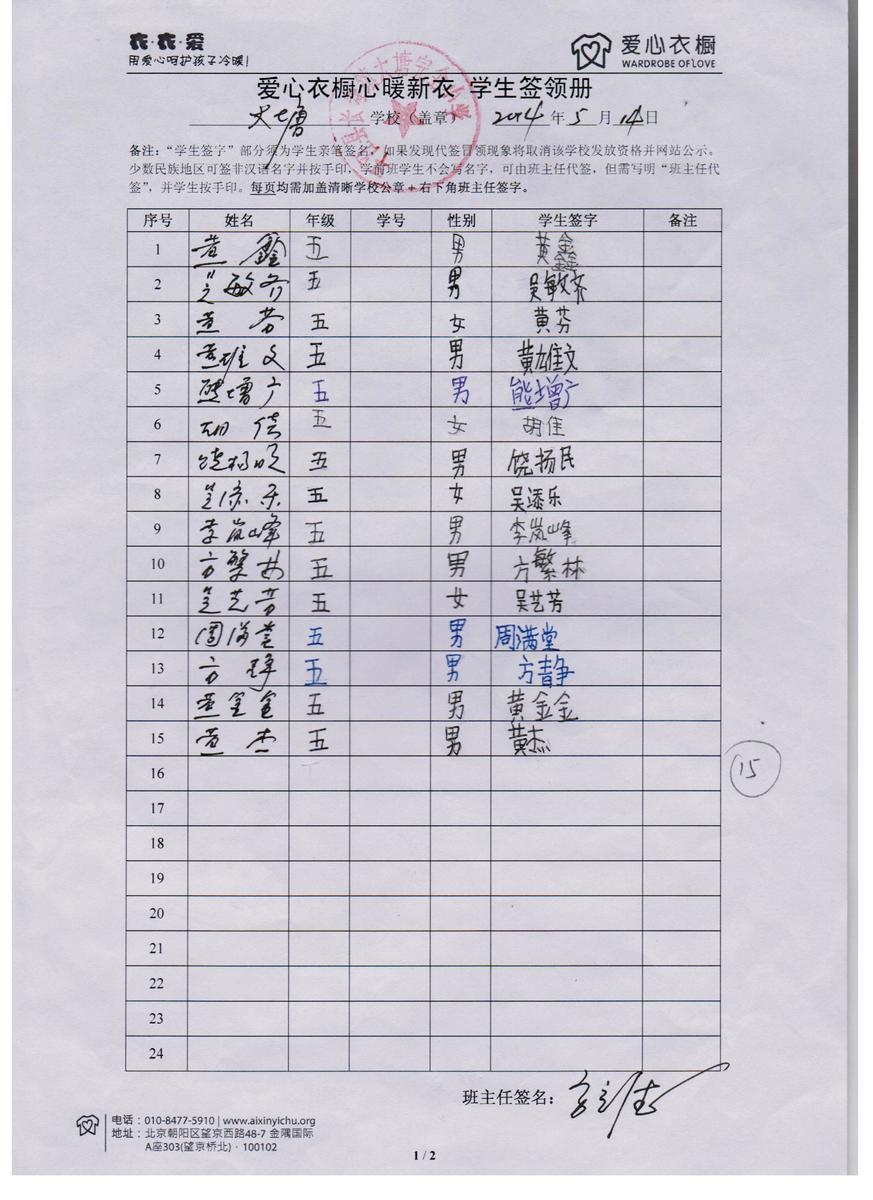 衣·衣·爱
用爱心呵护孩子冷暖!
爱心衣橱
WARDROBE OF LOVE
爱心衣橱心暖新衣 学生签领册
大塘 学校（盖章） 2014 年 5 月 14 日
备注：“学生签字”部分须为学生亲笔签名，如果发现代签冒领现象将取消该学校发放资格并网站公示。
少数民族地区可签非汉语名字并按手印，学前班学生不会写名字，可由班主任代签，但需写明“班主任代
签”，并学生按手印。每页均需加盖清晰学校公章+右下角班主任签字。
序号 姓名 年级 学号 性别 学生签字 备注
1 黄鑫 五 男 黄鑫
2 吴敏齐 五 男 吴敏齐
3 黄芬 五 女 黄芬
4 黄雄文 五 男 黄雄文
5 熊增广 五 男 熊增广
6 胡佳 五 女 胡佳
7 饶扬民 五 男 饶扬民
8 吴添乐 五 女 吴添乐
9 李岚峰 五 男 李岚峰
10 方繁林 五 男 方繁林
11 吴艺芳 五 女 吴艺芳
12 周满堂 五 男 周满堂
13 方静 五 男 方静
14 黄金金 五 男 黄金金
15 黄杰 五 男 黄杰
16
15
17
18
19
20
21
22
23
24
班主任签名：
电话：010-8477-5910 | www.aixinyichu.org
地址：北京朝阳区望京西路48-7 金隅国际
A座303(望京桥北)·100102
1 / 2